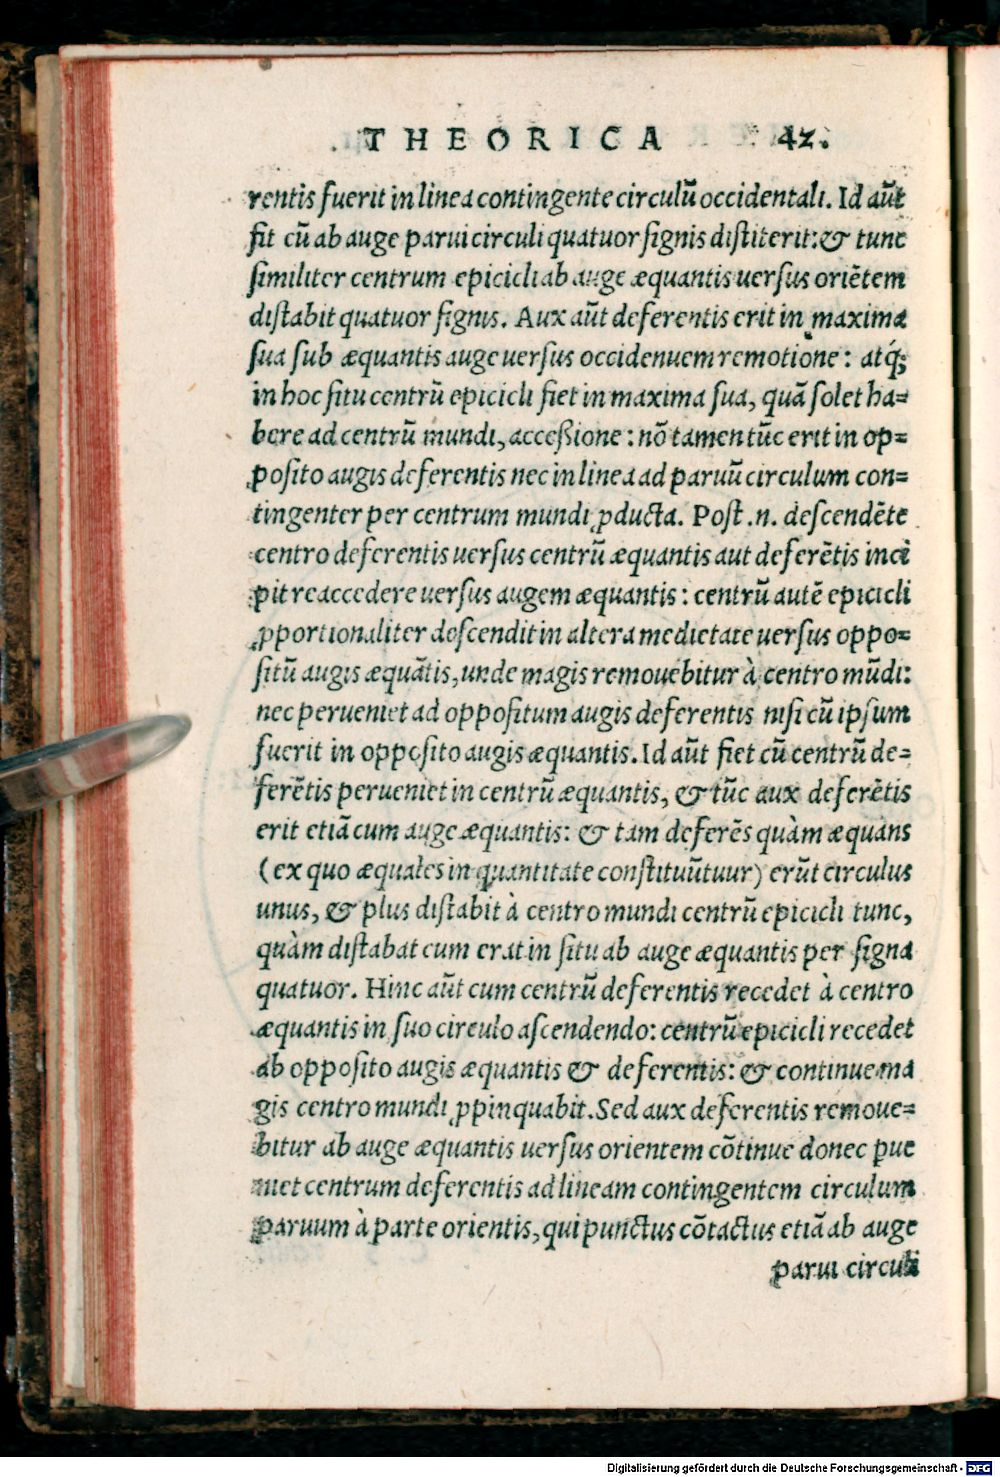 THEORICA 42.
rentis fuerit in linea contingente circulũ occidentali. Id aũt
fit cũ ab auge parui circuli quatuor signis distiterit: & tunc
similiter centrum epicicli ab auge æquantis uersus oriẽtem
distabit quatuor signis. Aux aũt deferentis erit in maxima
sua sub æquantis auge uersus occidenuem remotione: atq́;
in hoc situ centrũ epicicli fiet in maxima sua, quã solet ha=
bere ad centrũ mundi, accessione: nõ tamen tũc erit in op=
posito augis deferentis nec in linea ad paruũ circulum con=
tingenter per centrum mundi ꝓducta. Post .n. descendẽte
centro deferentis uersus centrũ æquantis aut deferẽtis incĩ
pit reaccedere uersus augem æquantis: centrũ autẽ epicicli
ꝓportionaliter descendit in altera medietate uersus oppo=
sitũ augis æquãtis, unde magis remouebitur à centro mũdi:
nec perueniet ad oppositum augis deferentis nisi cũ ipsum
fuerit in opposito augis æquantis. Id aũt fiet cũ centrũ de=
ferẽtis perueniet in centrũ æquantis, & tũc aux deferẽtis
erit etiã cum auge æquantis: & tam deferẽs quàm æquans
(ex quo æquales in quantitate constituũtuur) erũt circulus
unus, & plus distabit à centro mundi centrũ epicicli tunc,
quàm distabat cum erat in situ ab auge æquantis per signa
quatuor. Hinc aũt cum centrũ deferentis recedet à centro
æquantis in suo circulo ascendendo: centrũ epicicli recedet
ab opposito augis æquantis & deferentis: & continue ma
gis centro mundi ꝓpinquabit. Sed aux deferentis remoue=
bitur ab auge æquantis uersus orientem cõtinue donec ꝑue
niet centrum deferentis ad lineam contingentem circulum
paruum à parte orientis, qui punctus cõtactus etiã ab auge
parui circuli
Digitalisierung gefördert durch die Deutsche Forschungsgemeinschaft - DFG